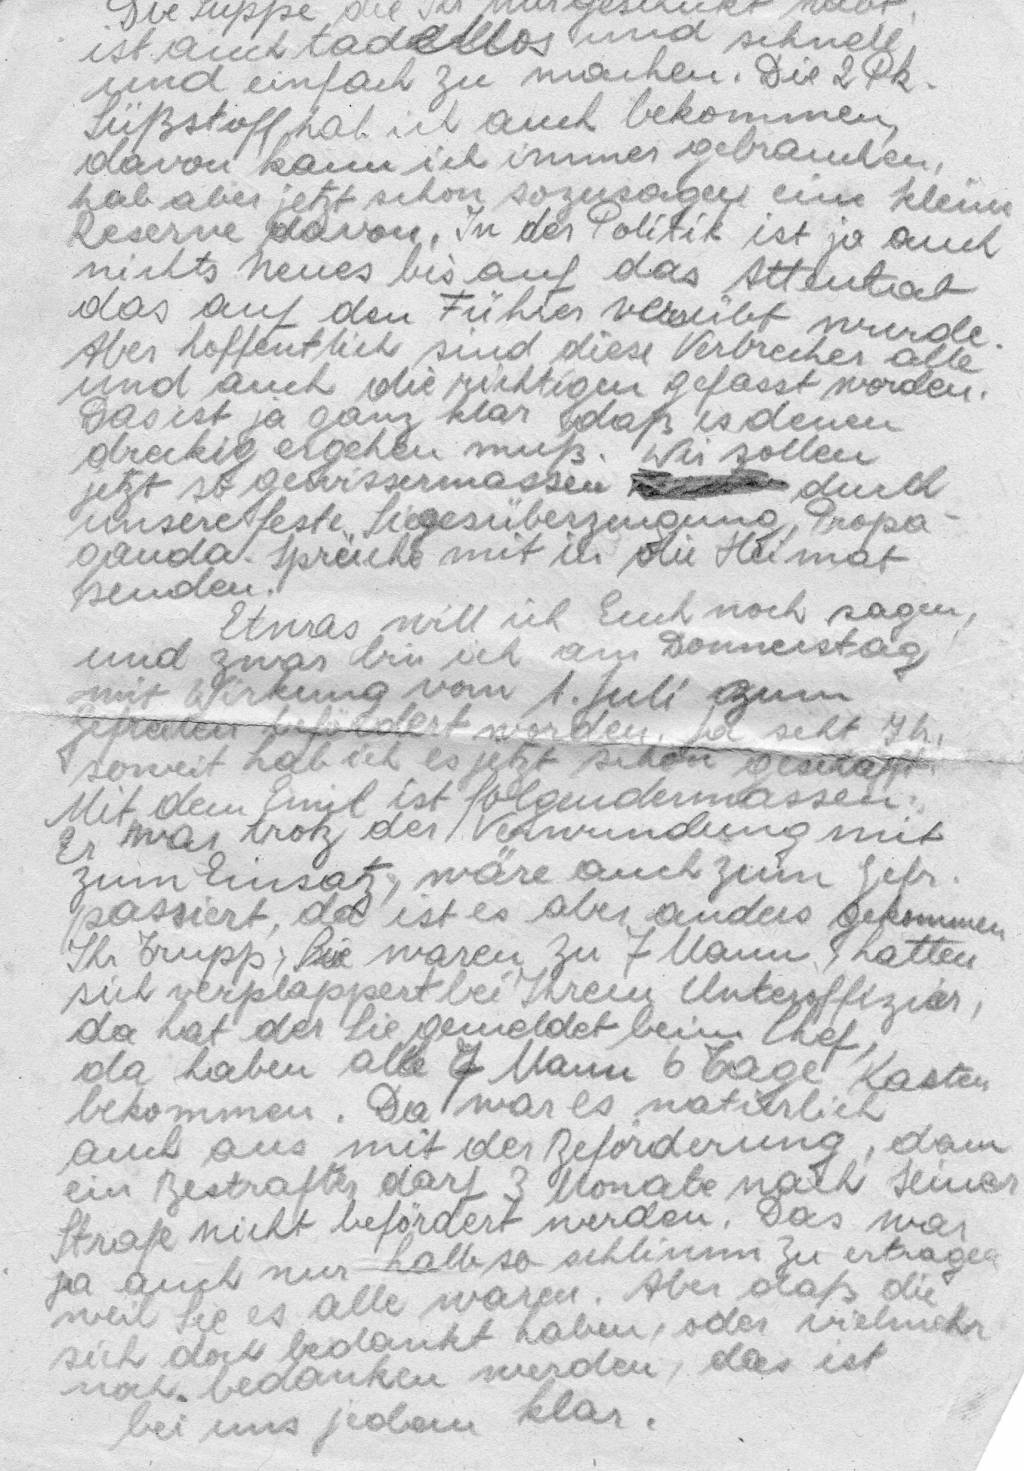 Die Suppe, die Ihr mir geschickt habt,
ist auch tadellos und schnell
und einfach zu machen. Die 2 Pk.
Süßstoff hab ich auch bekommen,
davon kann ich immer gebrauchen,
hab aber jetzt schon sozusagen eine kleine
Reserve davon. In der Politik ist ja auch
nichts Neues bis auf das Attentat
das auf den Führer verübt wurde.
Aber hoffentlich sind diese Verbrecher alle
und auch die richtigen gefasst worden.
Das ist ja ganz klar daß es denen
dreckig ergehen muß. Wir sollen
jetzt so gewissermassen durch
unsere feste Siegesüberzeugung, Propa-
ganda. Sprüche mit in die Heimat
senden.
Etwas will ich Euch noch sagen,
und zwar bin ich am Donnerstag
mit Wirkung vom 1. Juli zum
Gefreiten befördert worden. Ja seht Ihr,
soweit hab ich es jetzt schon geschafft.
Mit dem Emil ist folgendermassen:
Er war trotz der Verwundung mit
zum Einsatz, wäre auch zum Gefr.
passiert, da ist es aber anders gekommen
Ihr Trupp, Sie waren zu 7 Mann, hatten
sich verplappert bei Ihrem Unteroffizier,
da hat der Sie gemeldet beim Chef,
da haben alle 7 Mann 6 Tage Kasten
bekommen. Da war es natürlich
auch aus mit der Beförderung, denn
ein Bestrafter darf 3 Monate nach seiner
Strafe nicht befördert werden. Das war
ja auch nur halb so schlimm zu ertragen
weil Sie es alle waren. Aber daß die
sich doch bedankt haben, oder vielmehr
noch bedanken werden, das ist
bei uns jedem klar.